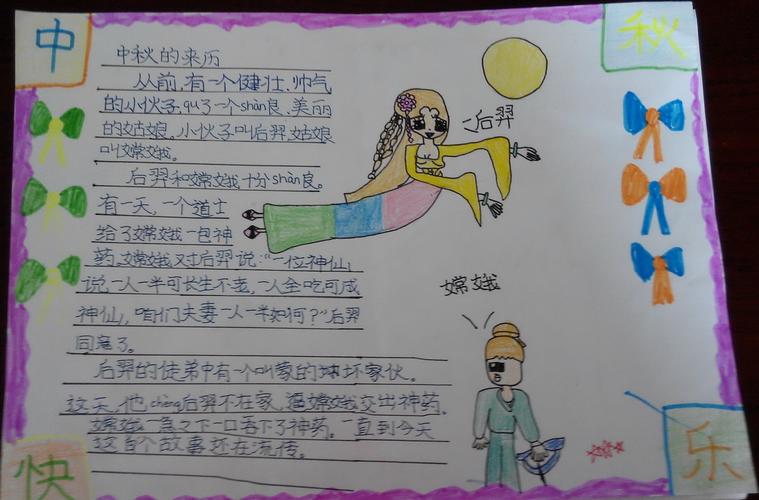 中
秋
中秋的来历
从前，有一个健壮、帅气
的小伙子，qu了一个shàn良、美丽
的姑娘，小伙子叫后羿，姑娘
叫嫦娥。
后羿和嫦娥十分shàn良。
有一天，一个道士
给了嫦娥一包神
药，嫦娥对后羿说：“一位神仙
说，一人一半可长生不老，一人全吃可成
神仙，咱们夫妻一人一半如何？”后羿
同意了。
后羿的徒弟中有一个叫蒙的坏家伙。
这天，他chèng后羿不在家，逼嫦娥交出神药。
嫦娥一急之下一口吞下了神药。一直到今天
这个故事还在流传。
后羿
嫦娥
快
乐